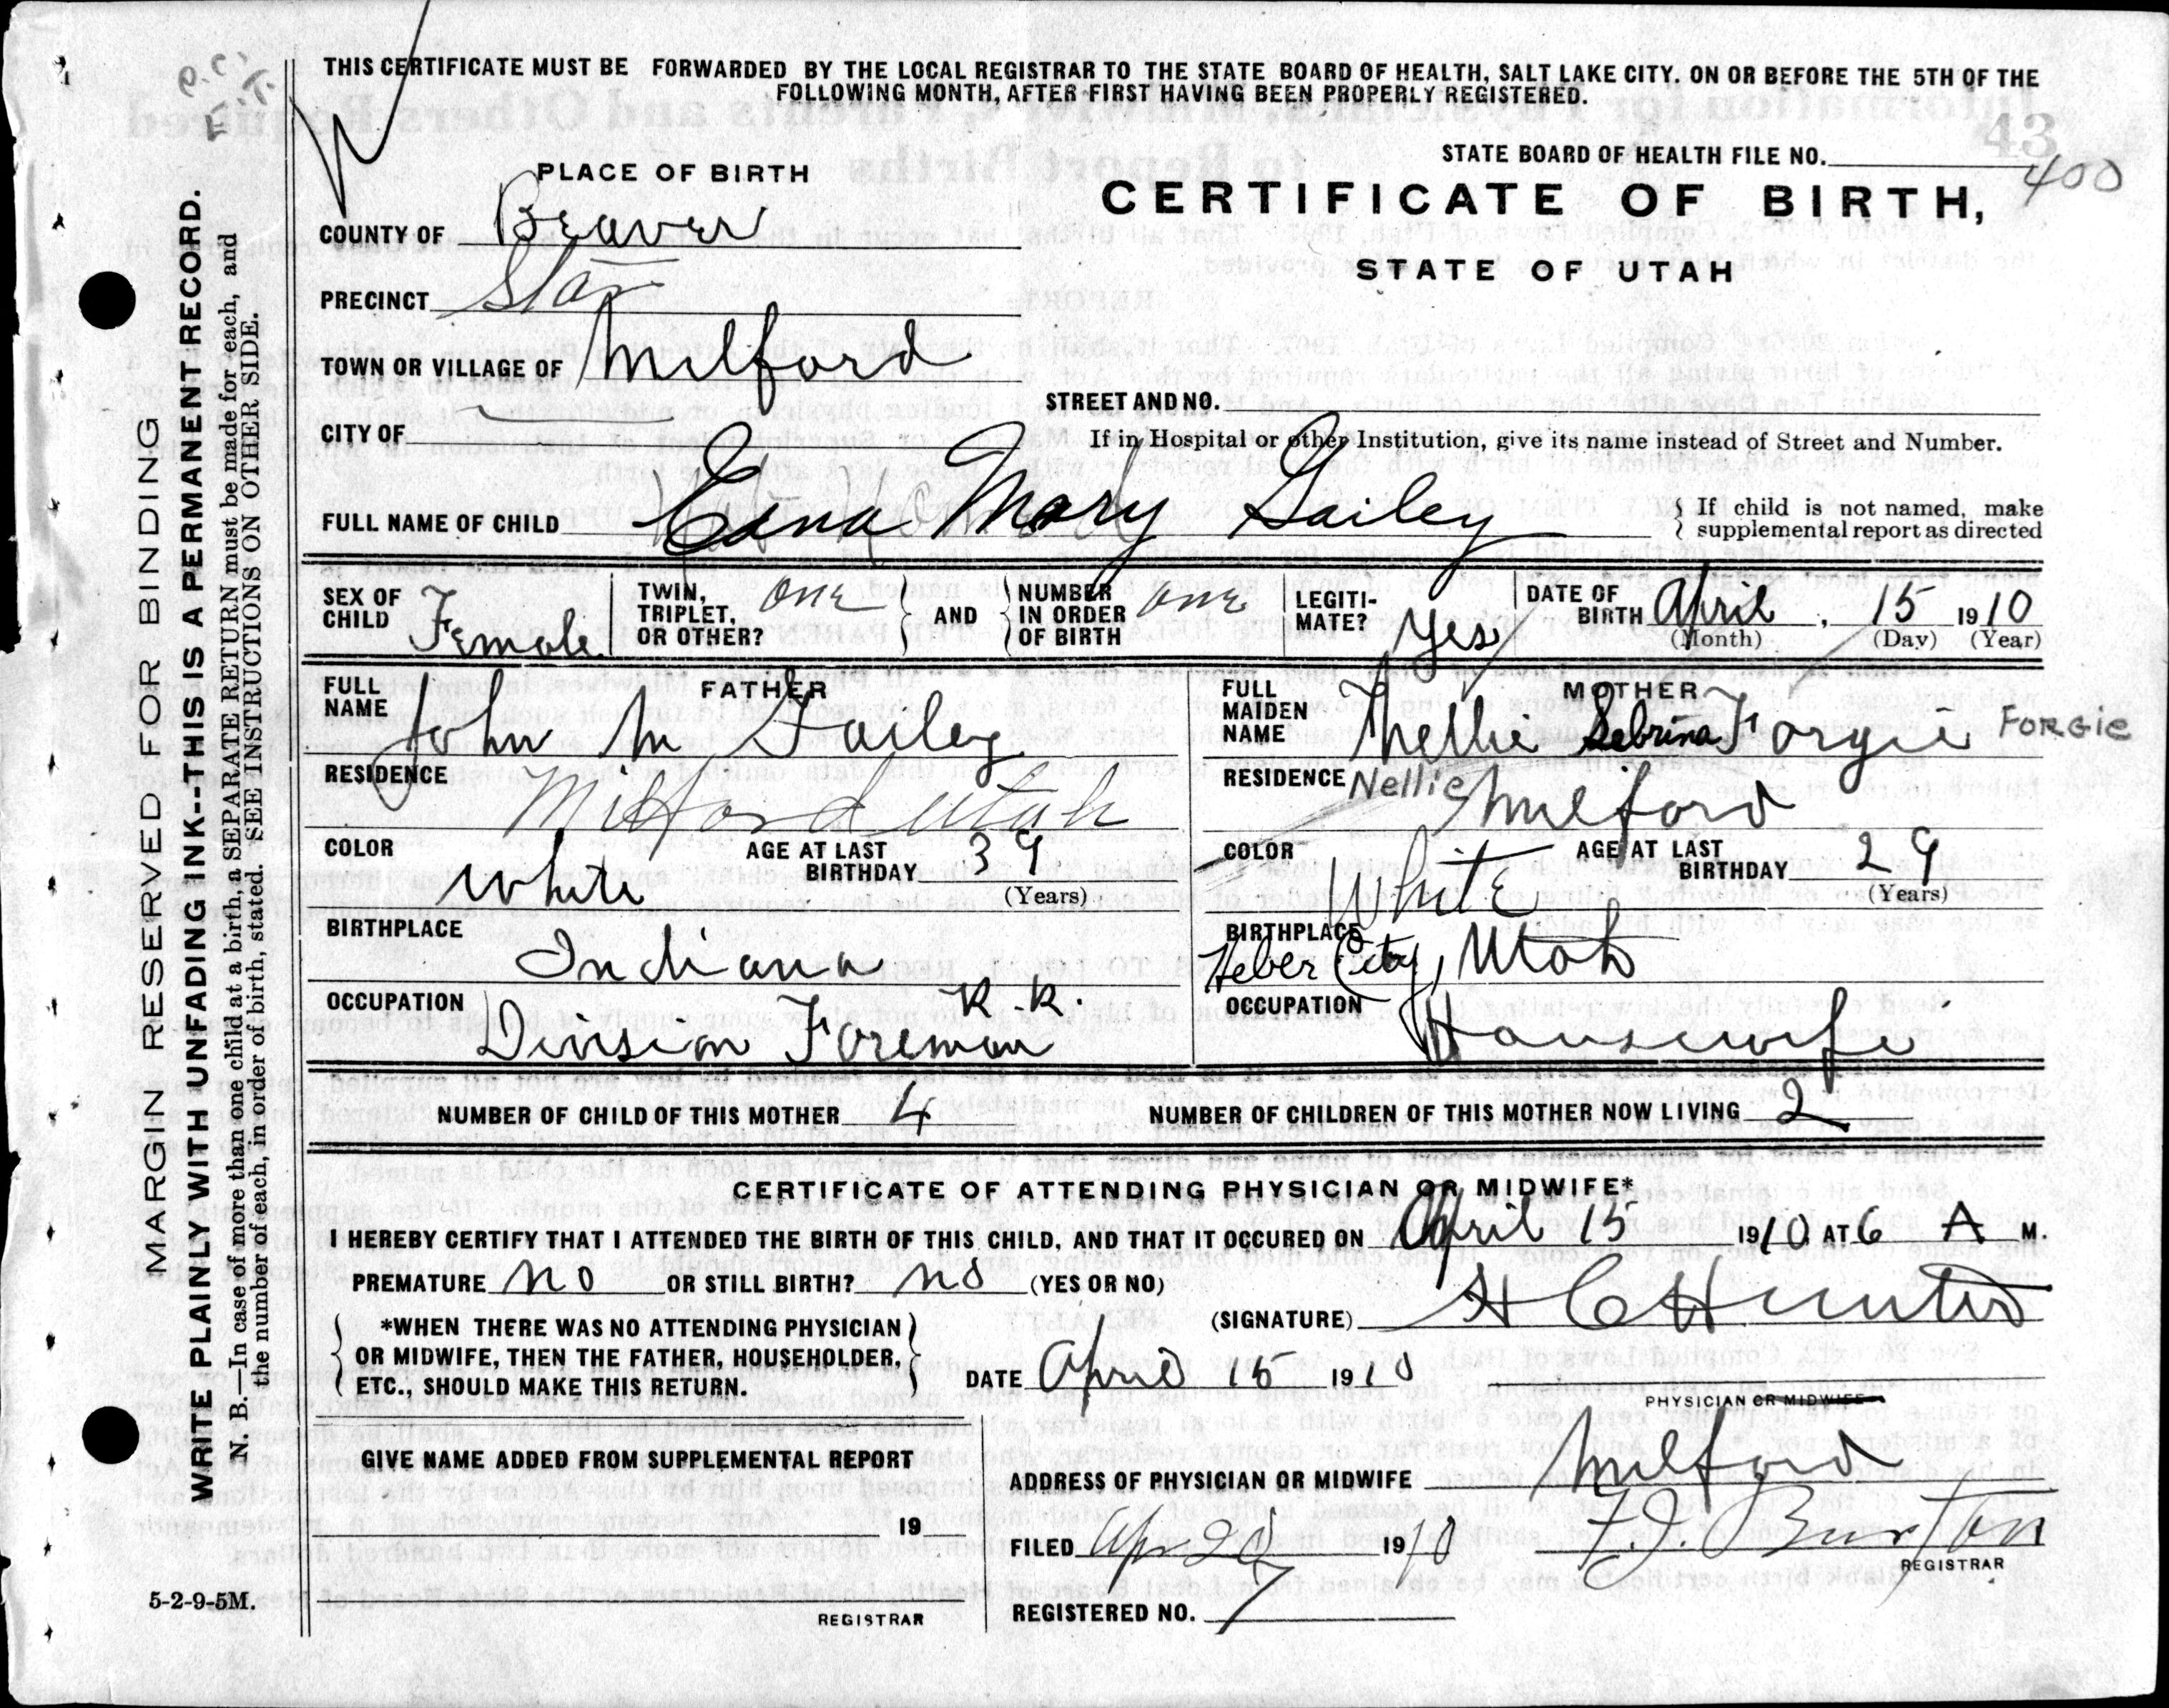 THIS CERTIFICATE MUST BE FORWARDED BY THE LOCAL REGISTRAR TO THE STATE BOARD OF HEALTH, SALT LAKE CITY. ON OR BEFORE THE 5TH OF THE
FOLLOWING MONTH, AFTER FIRST HAVING BEEN PROPERLY REGISTERED.
43
STATE BOARD OF HEALTH FILE NO.
400
PLACE OF BIRTH
CERTIFICATE OF BIRTH,
STATE OF UTAH
COUNTY OF Beaver
PRECINCT Star
TOWN OR VILLAGE OF Milford
STREET AND NO.
CITY OF
If in Hospital or other Institution, give its name instead of Street and Number.
FULL NAME OF CHILD Edna Mary Gailey
If child is not named, make
supplemental report as directed
SEX OF CHILD Female
TWIN, TRIPLET, OR OTHER? one
AND
NUMBER IN ORDER OF BIRTH one
LEGITI-MATE? yes
DATE OF BIRTH April, 15 1910
(Month) (Day) (Year)
FATHER
FULL NAME John M Gailey
RESIDENCE Milford Utah
COLOR White
AGE AT LAST BIRTHDAY 39
(Years)
BIRTHPLACE Indiana
OCCUPATION Division Foreman R.R.
MOTHER
FULL MAIDEN NAME Nellie Sebrina Forgie FORGIE
Nellie
RESIDENCE Milford
COLOR White
AGE AT LAST BIRTHDAY 29
(Years)
BIRTHPLACE Heber City, Utah
OCCUPATION Housewife
NUMBER OF CHILD OF THIS MOTHER 4
NUMBER OF CHILDREN OF THIS MOTHER NOW LIVING 2
CERTIFICATE OF ATTENDING PHYSICIAN OR MIDWIFE*
I HEREBY CERTIFY THAT I ATTENDED THE BIRTH OF THIS CHILD, AND THAT IT OCCURED ON April 15 1910 AT 6 A M.
PREMATURE No OR STILL BIRTH? no (YES OR NO)
*WHEN THERE WAS NO ATTENDING PHYSICIAN
OR MIDWIFE, THEN THE FATHER, HOUSEHOLDER,
ETC., SHOULD MAKE THIS RETURN.
(SIGNATURE) H C Hunter
DATE April 15 1910
PHYSICIAN OR MIDWIFE
GIVE NAME ADDED FROM SUPPLEMENTAL REPORT
19
REGISTRAR
ADDRESS OF PHYSICIAN OR MIDWIFE Milford
FILED Apr 20 1910
F. J. Burton
REGISTRAR
REGISTERED NO. 7
MARGIN RESERVED FOR BINDING
WRITE PLAINLY WITH UNFADING INK--THIS IS A PERMANENT RECORD.
N. B.—In case of more than one child at a birth, a SEPARATE RETURN must be made for each, and
the number of each, in order of birth, stated. SEE INSTRUCTIONS ON OTHER SIDE.
5-2-9-5M.